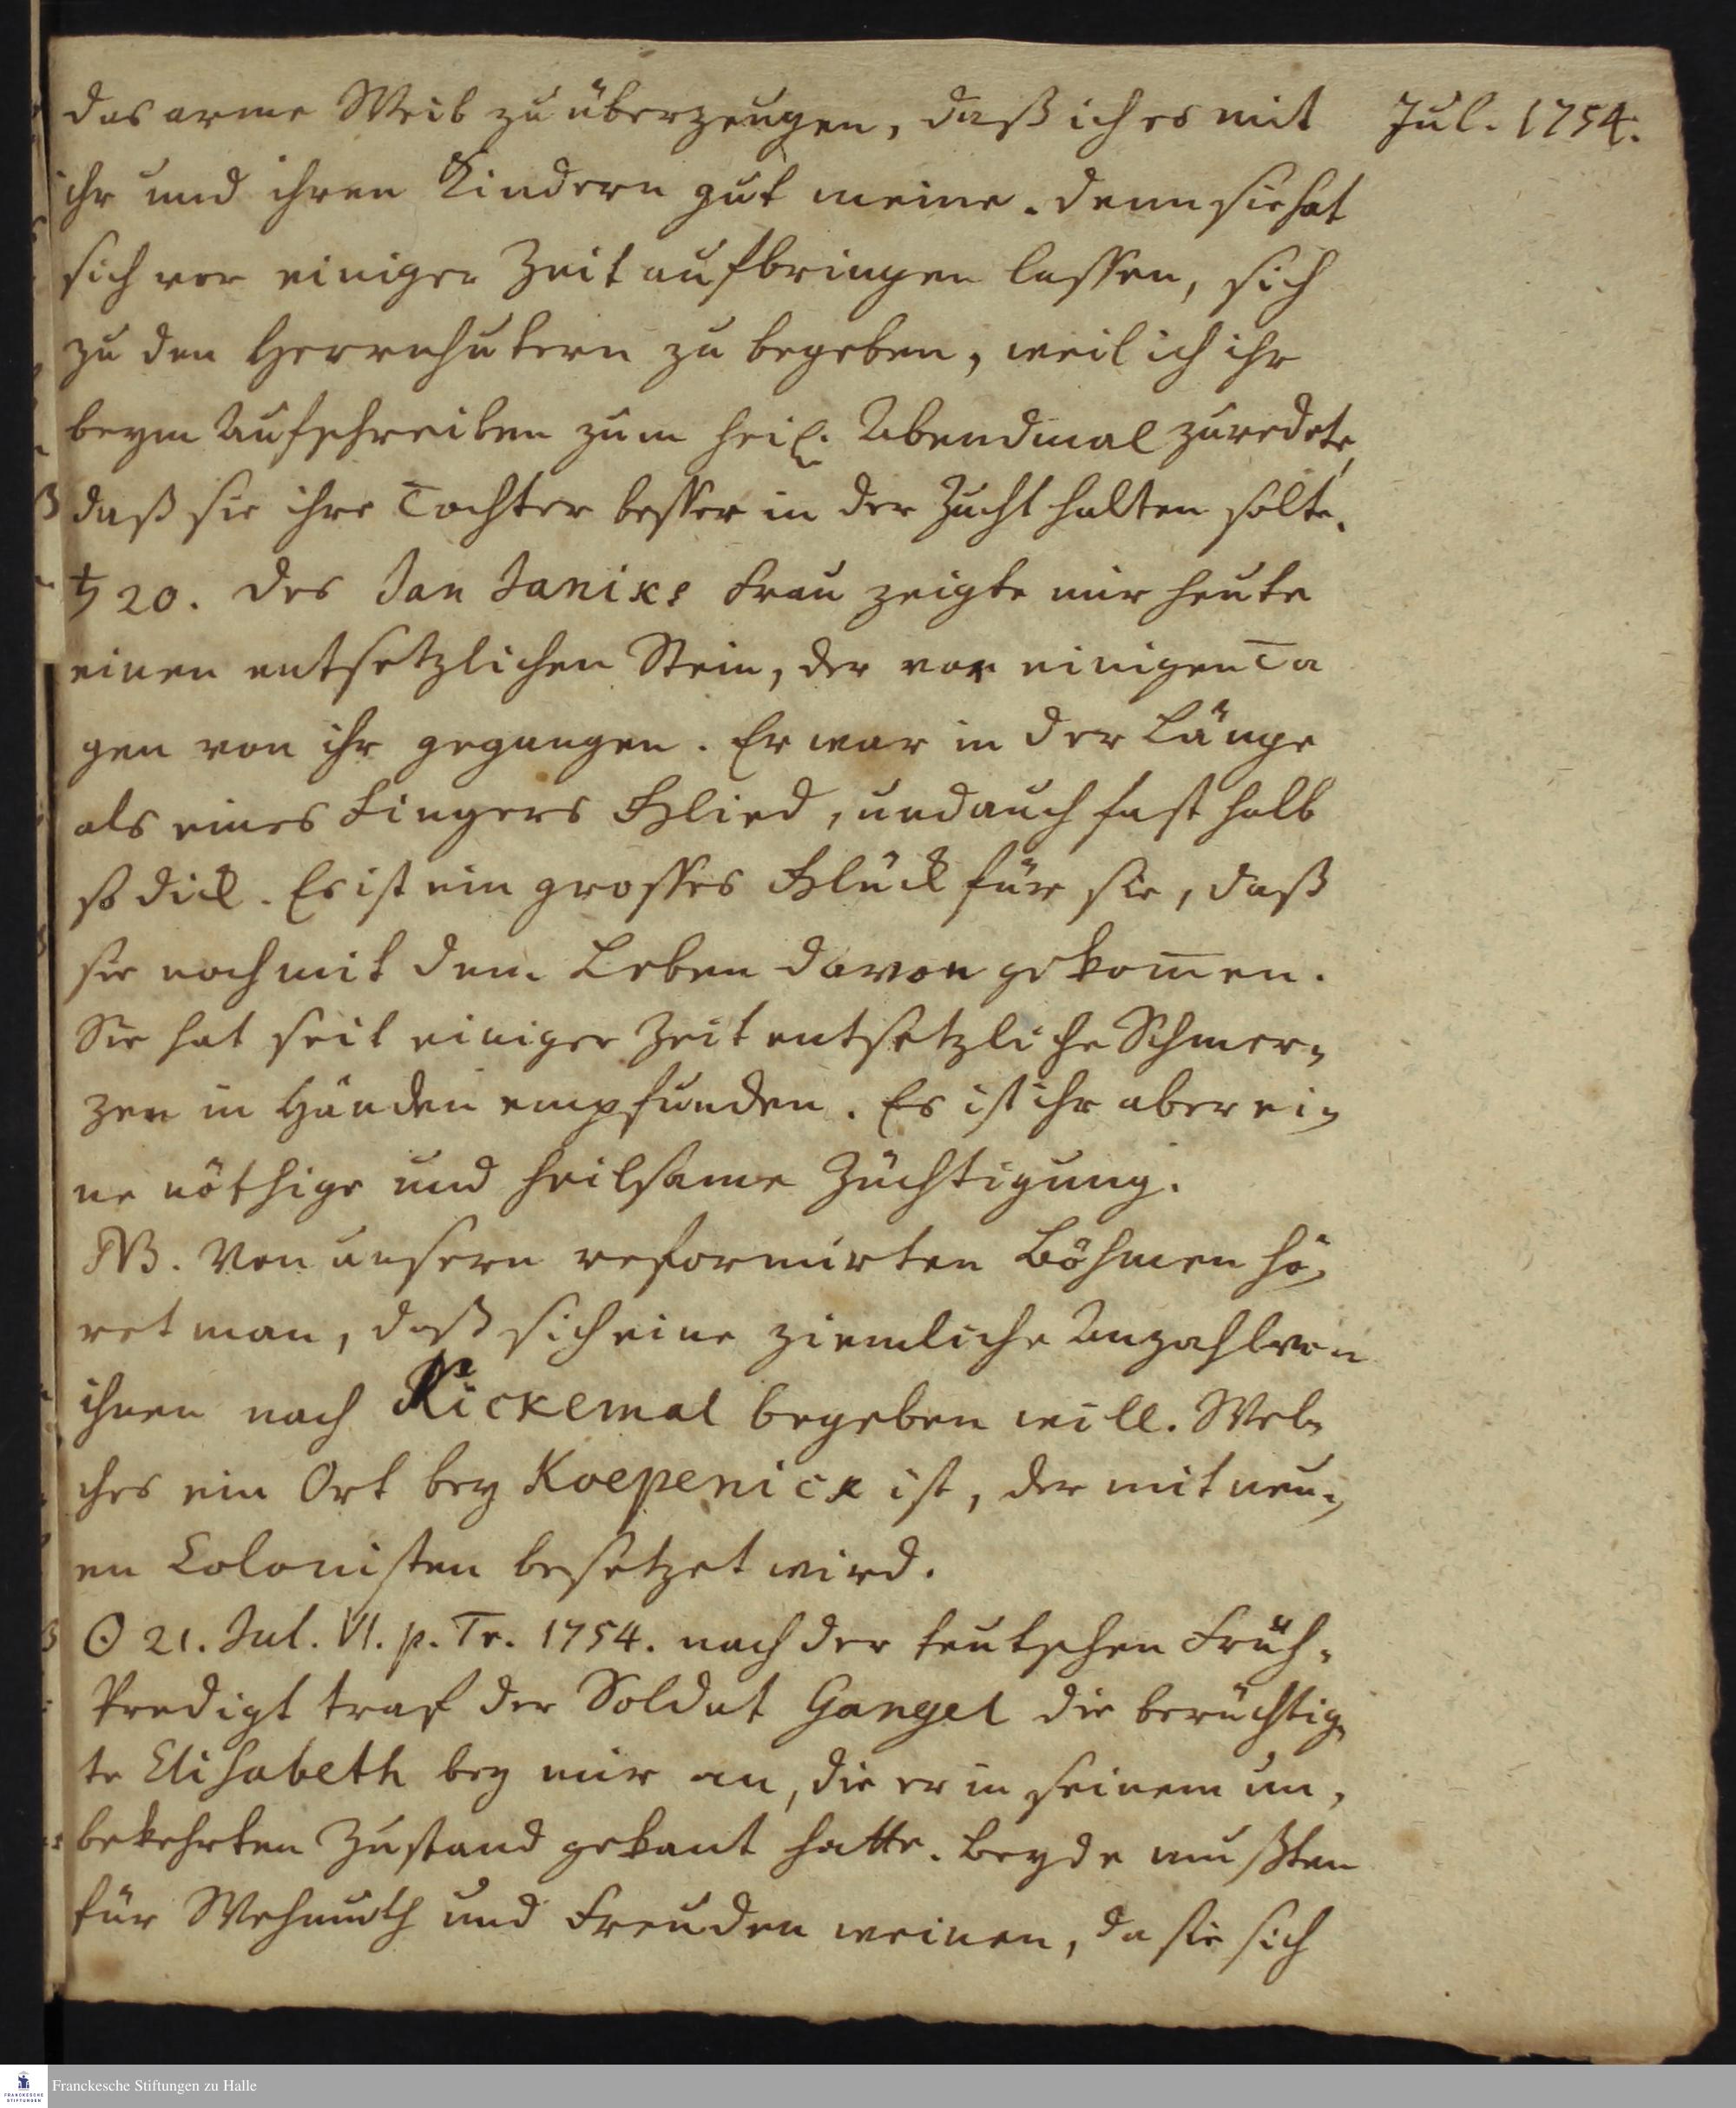 das arme Weib zu überzeugen, daß ich es mit
Jul. 1754.
ihr und ihren Kindern gut meine. denn sie hat
sich vor einiger Zeit aufbringen lassen, sich
zu den Herrnhutern zu begeben, weil ich ihr
beym Aufschreiben zum heil. Abendmal zuredete,
daß sie ihre Tochter besser in der Zucht halten solte.
♄ 20. des Jan Janiks Frau zeigte mir heute
einen entsetzlichen Stein, der vor einigen Ta
gen von ihr gegangen. Er war in der Länge
als eines Fingers Glied, und auch fast halb
so dick. Es ist ein grosses Glück für sie, daß
sie noch mit dem Leben davon gekom̅en.
Sie hat seit einiger Zeit entsetzliche Schmer-
zen in Händen empfunden. Es ist ihr aber ei-
ne nöthige und heilsame Züchtigung.
NB. Von unsern reformirten Böhmen hö-
ret man, daß sich eine ziemliche Anzahl von
ihnen nach Rickemal begeben will. Wel-
ches ein Ort bey Koepenick ist, der mit neu-
en Colonisten besetzet wird.
☉ 21. Jul. VI. p. Tr. 1754. nach der teutschen Früh-
Predigt traf der Soldat Gangel die berüchtig-
te Elisabeth bey mir an, die er in seinem un-
bekehrten Zustand gekant hatte. Beyde mußten
für Wehmuth und Freuden weinen, da sie sich
Franckesche Stiftungen zu Halle